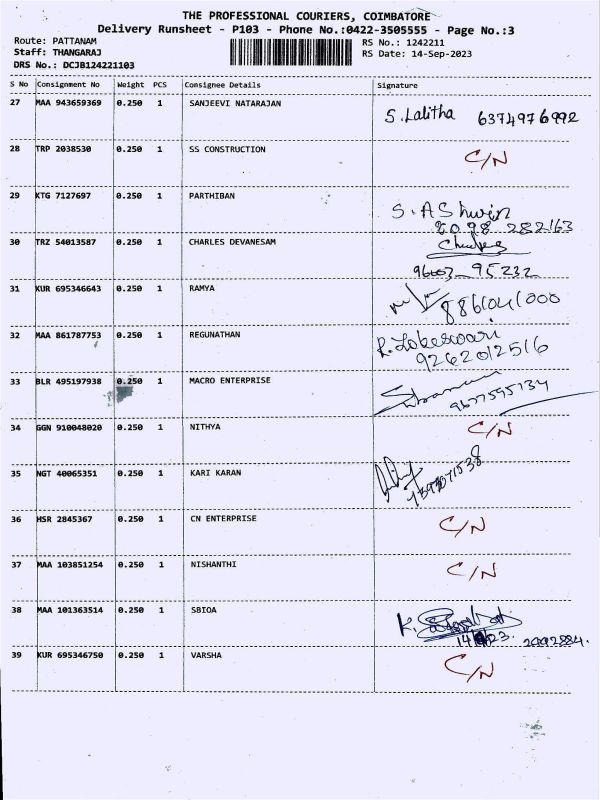 THE PROFESSIONAL COURIERS, COIMBATORE
Delivery Runsheet - P103 - Phone No.:0422-3505555 - Page No.:3
Route: PATTANAM
RS No.: 1242211
Staff: THANGARAJ
RS Date: 14-Sep-2023
DRS No.: DCJB124221103
S No Consignment No Weight PCS Consignee Details Signature
27 MAA 943659369 0.250 1 SANJEEVI NATARAJAN S. Lalitha 6374976992
28 TRP 2038530 0.250 1 SS CONSTRUCTION C/N
29 KTG 7127697 0.250 1 PARTHIBAN S. AShwin
8098 282163
30 TRZ 54013587 0.250 1 CHARLES DEVANESAM
96003 95232
31 KUR 695346643 0.250 1 RAMYA
32 MAA 861787753 0.250 1 REGUNATHAN R. Lokeswari
9262012516
33 BLR 495197938 0.250 1 MACRO ENTERPRISE
9677595734
34 GGN 910048020 0.250 1 NITHYA C/N
35 NGT 40065351 0.250 1 KARI KARAN
36 HSR 2845367 0.250 1 CN ENTERPRISE C/N
37 MAA 103851254 0.250 1 NISHANTHI C/N
38 MAA 101363514 0.250 1 SBIOA K.
2992884.
39 KUR 695346750 0.250 1 VARSHA C/N